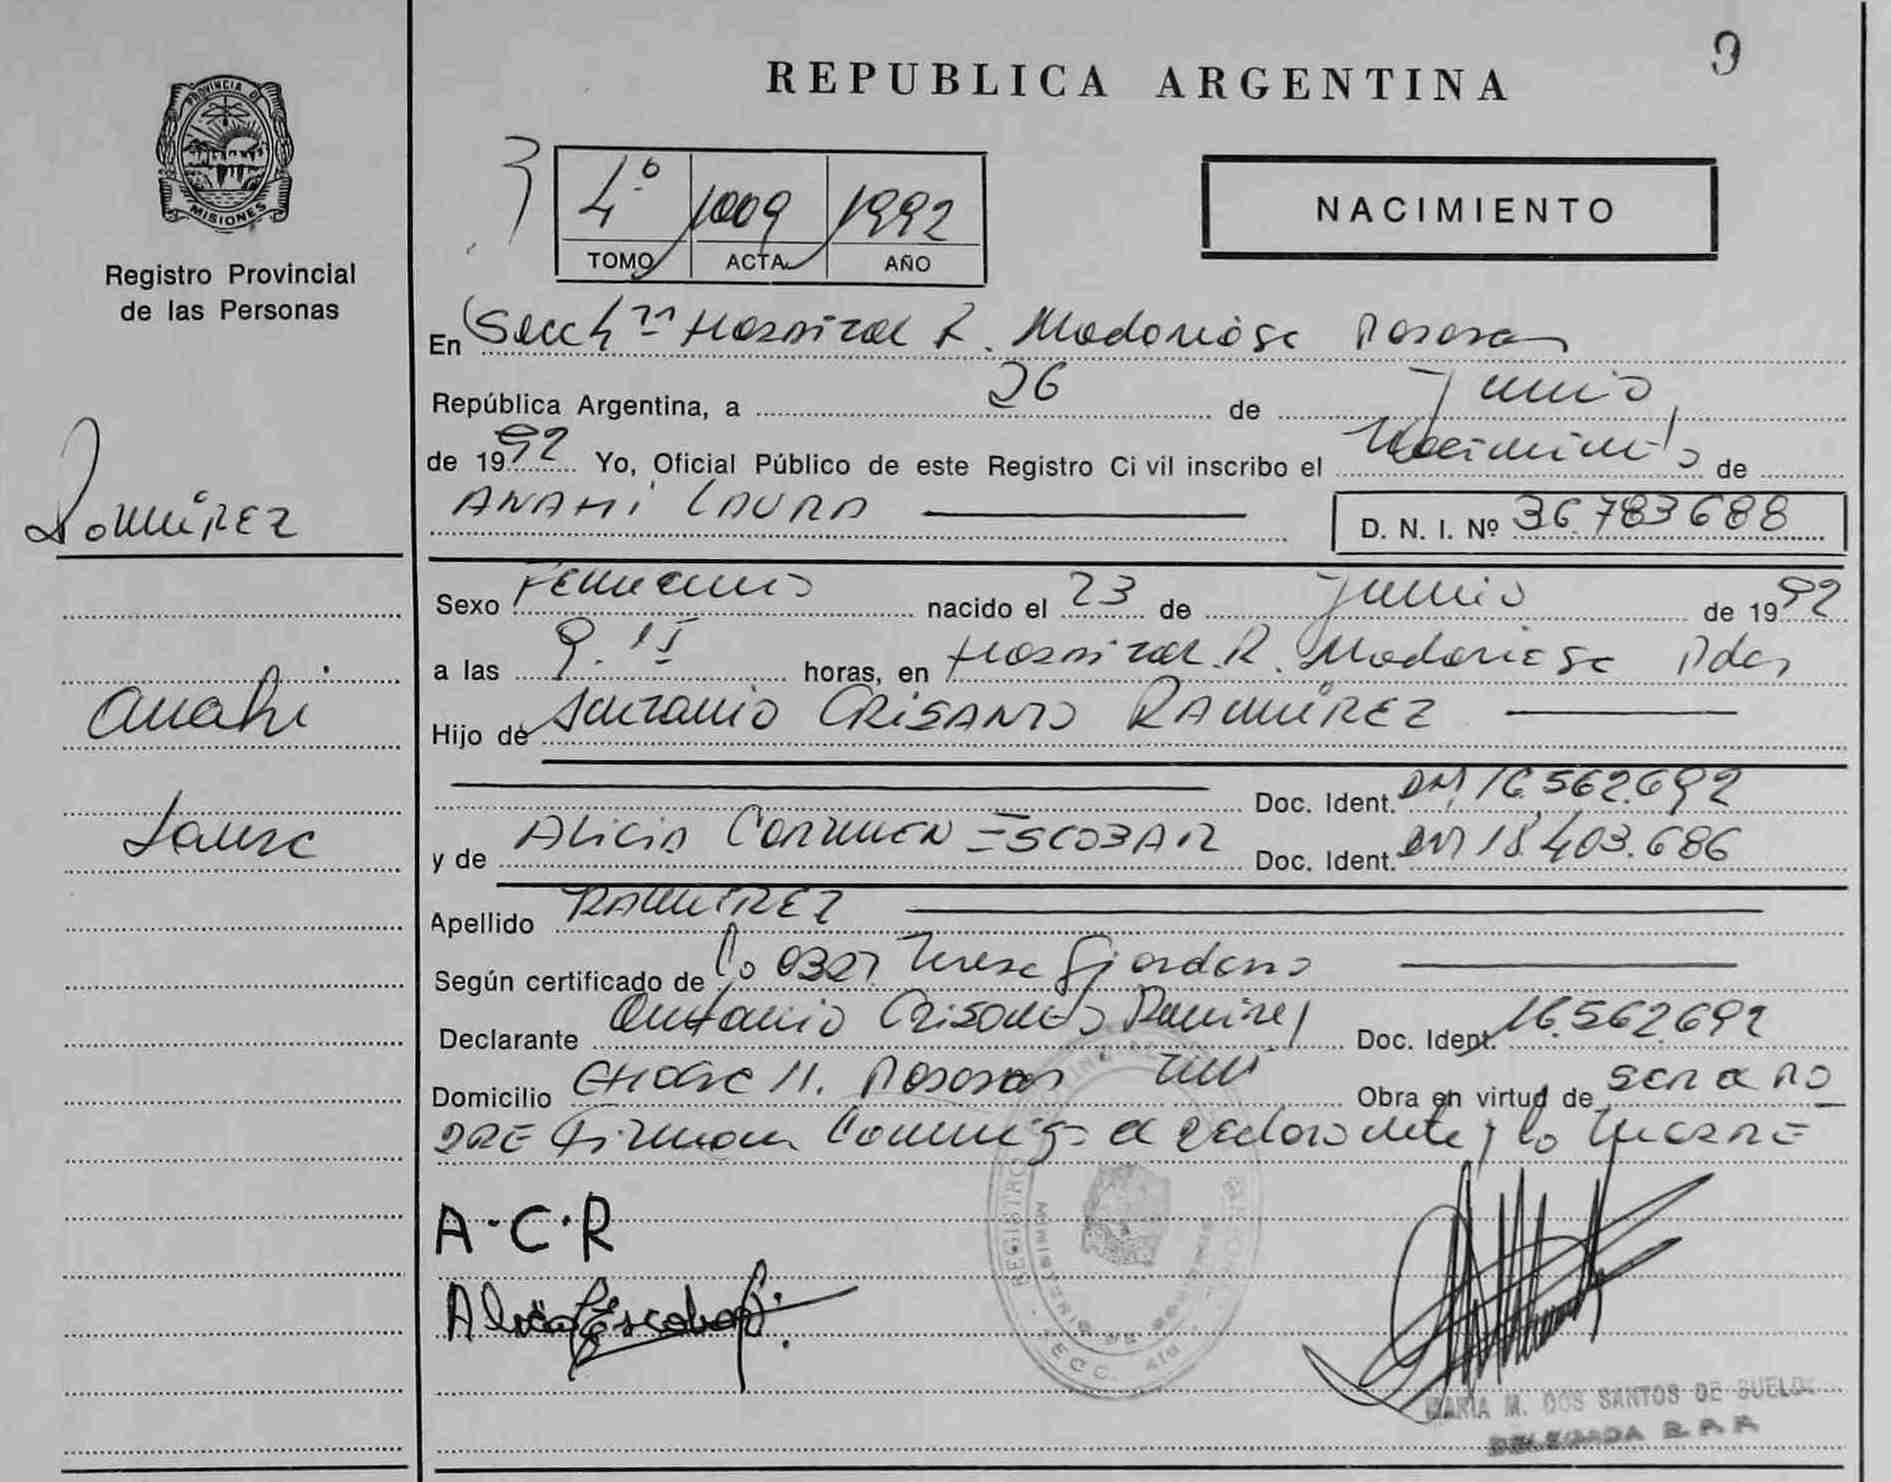 REPUBLICA ARGENTINA
9
PROVINCIA DE
MISIONES
Registro Provincial
de las Personas
3
4º 1009 1992
TOMO ACTA AÑO
NACIMIENTO
En Secc 4ta Hospital R. Madariaga Posadas
República Argentina, a 26 de Junio
de 1992 Yo, Oficial Público de este Registro Civil inscribo el Nacimiento de
ANAHI LAURA D. N. I. Nº 36.783688
Ramírez
Anahi
Laura
Sexo Femenino nacido el 23 de Junio de 1992
a las 9.15 horas, en Hospital R. Madariaga Pdas
Hijo de Antonio CRISANTO RAMÍREZ
Doc. Ident. DNI 16.562.692
y de Alicia Carmen ESCOBAR Doc. Ident. DNI 18.403.686
Apellido RAMIREZ
Según certificado de Teresa Giordano
Declarante Antonio Crisanto Ramirez Doc. Ident. 16.562.692
Domicilio Posadas Obra en virtud de ser a pa
DRE Firman Conmigo el declarante y la MADRE
A.C.R
Alicia Escobar
MARIA M. DOS SANTOS DE
DELEGADA R. P. P.